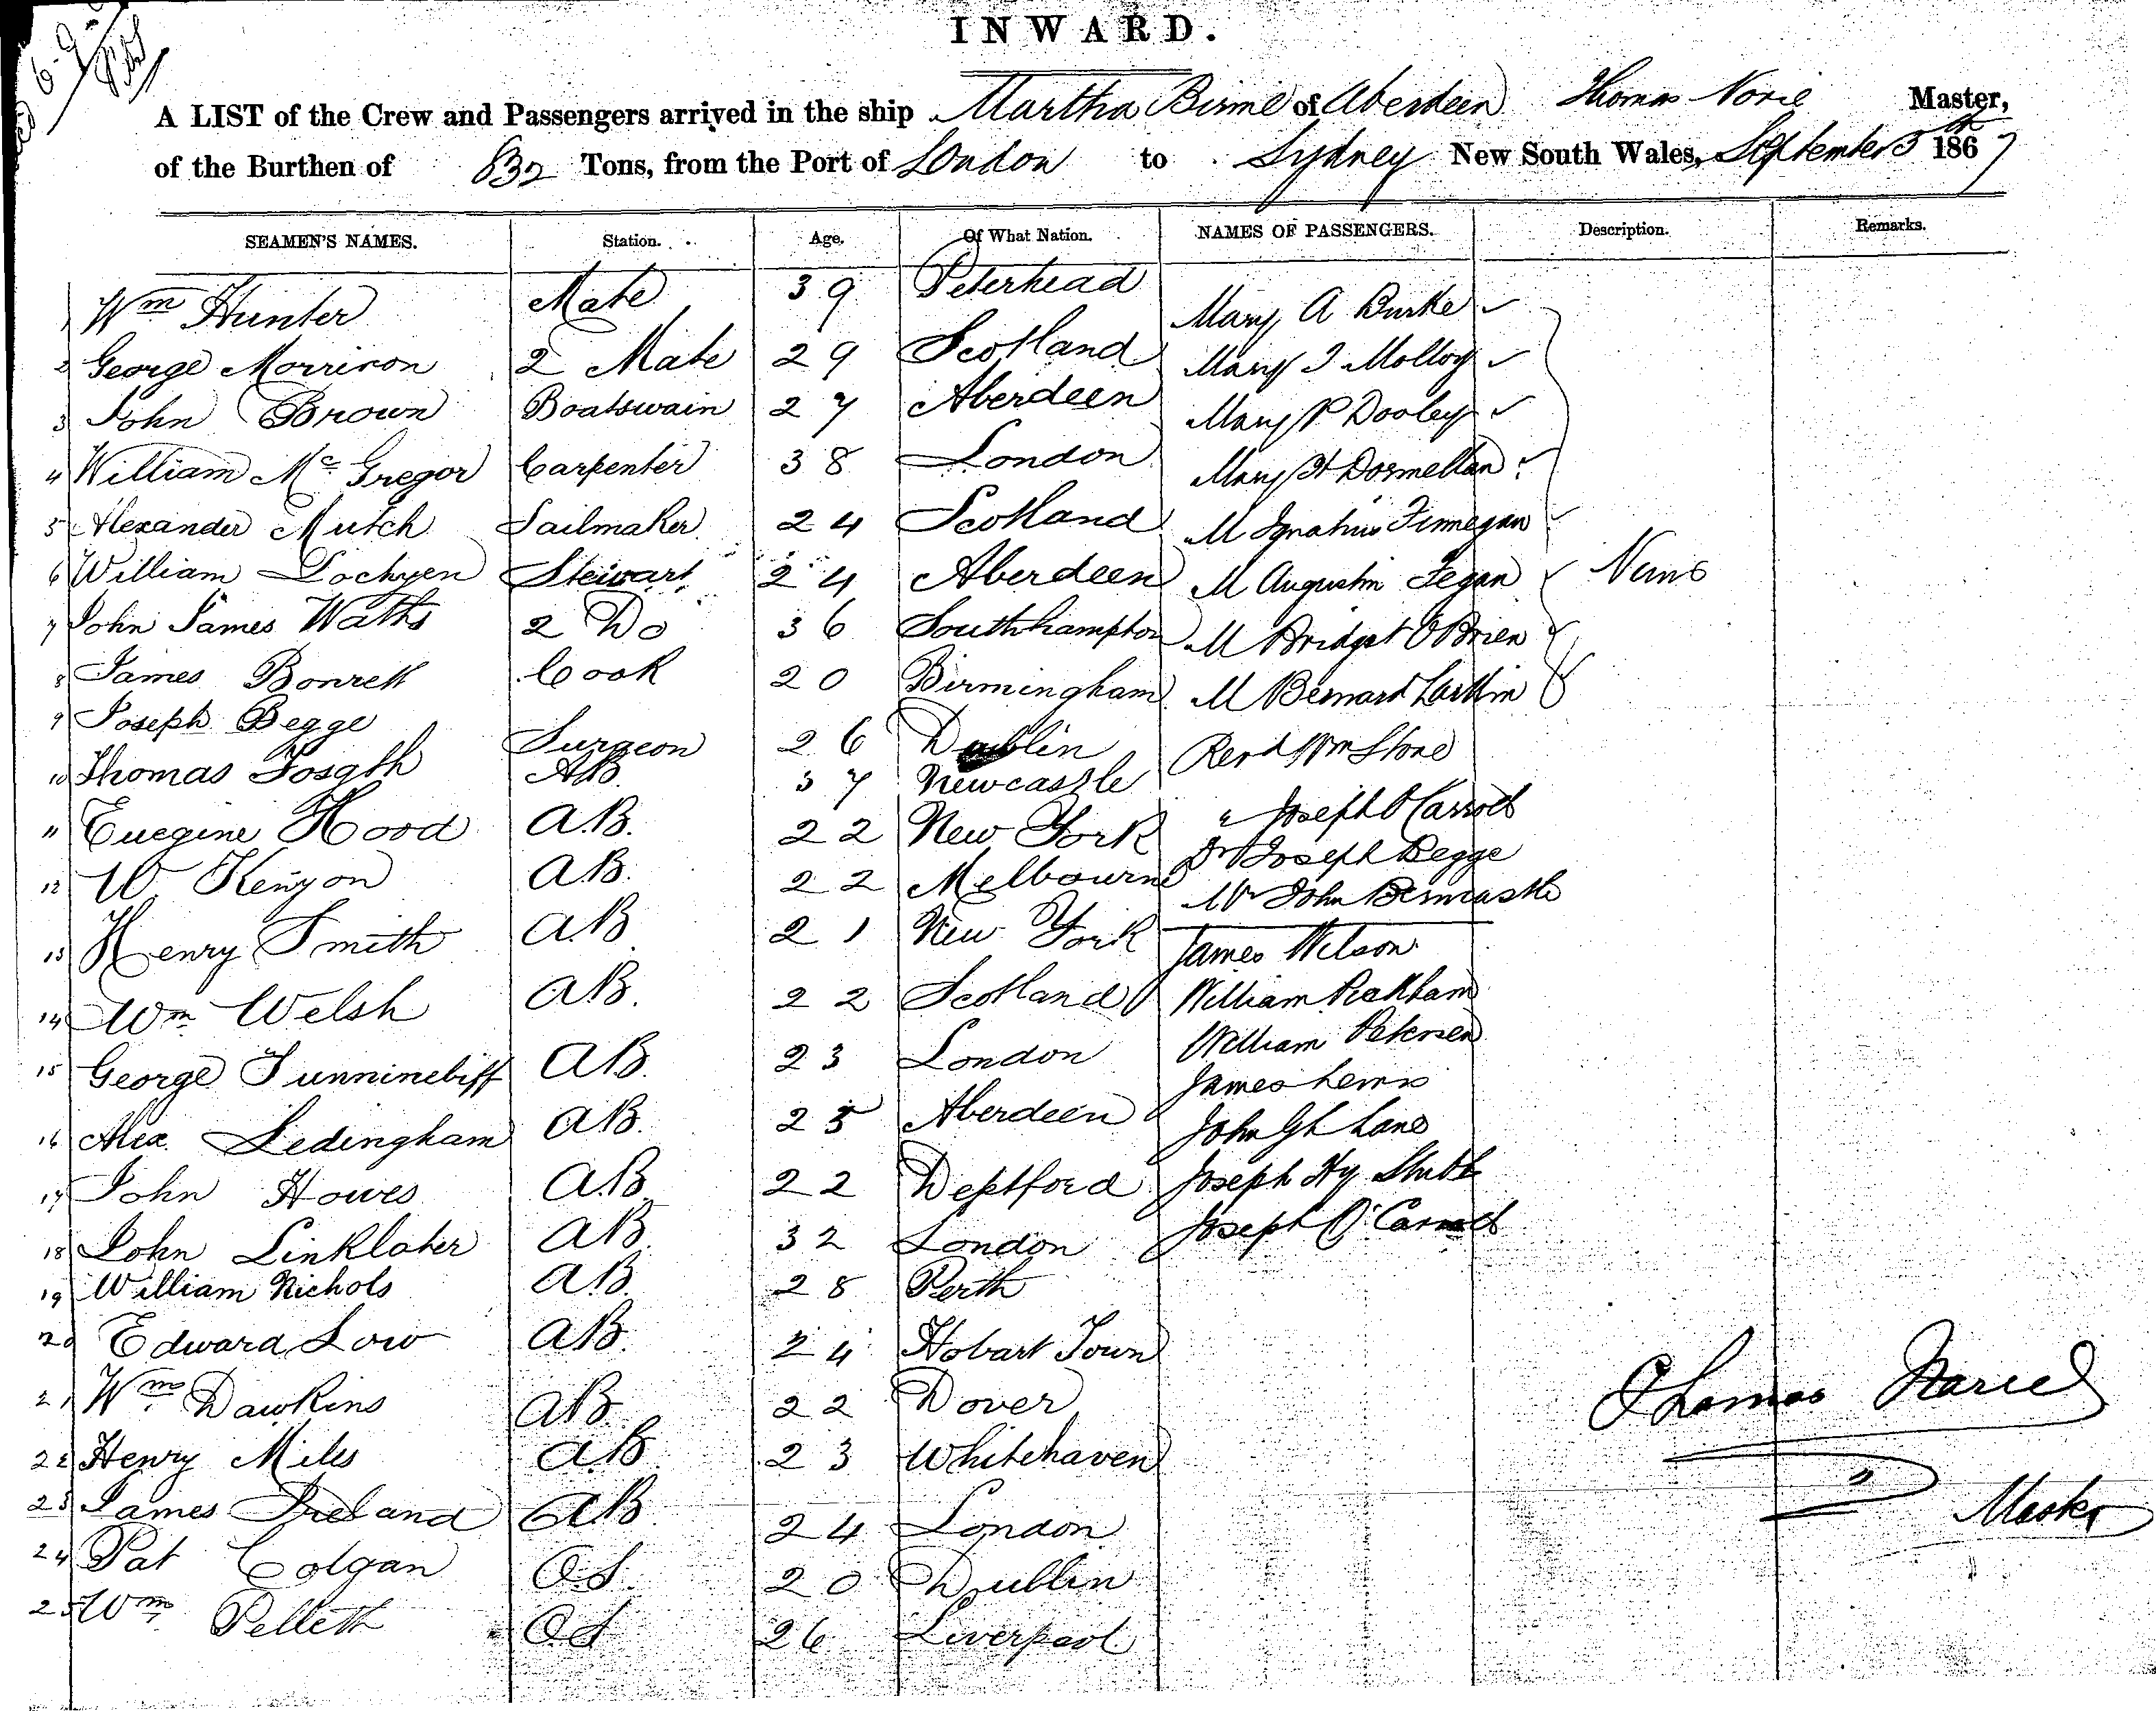 INWARD.
A LIST of the Crew and Passengers arrived in the ship Martha Birnie of Aberdeen Thomas Norie Master,
of the Burthen of 832 Tons, from the Port of London to Sydney New South Wales, September 5th 1867
SEAMEN'S NAMES. Station. Age. Of What Nation. NAMES OF PASSENGERS. Description. Remarks.
1 Wm Hunter Mate 39 Peterhead Mary A Burke
2 George Morrison 2 Mate 29 Scotland Mary I Molloy
3 John Brown Boatswain 27 Aberdeen Mary P Dooley
4 William McGregor Carpenter 38 London Mary
5 Alexander Mutch Sailmaker 24 Scotland M Ignatius Finnegan
6 William Stewart 24 Aberdeen M Augustin Fegan Nuns
7 John James Watts 2 Do 36 Southhampton M Bridget O'Brien
8 James Cook 20 Birmingham M Bernard Larkin
9 Joseph Begge Surgeon 26 Dublin Revd Wm Stone
10 Thomas AB. 37 Newcastle " Joseph O'Carroll
11 Euegine Hood A.B. 22 New York Dr Joseph Begge
12 W Kenyon A.B. 22 Melbourne Mr John Berncastle
13 Henry Smith A.B 21 New York James Wilson
14 Wm Welsh A.B. 22 Scotland William
15 George AB. 23 London William Petersen
James Lewis
16 Alex. Ledingham AB. 25 Aberdeen John Lane
17 John Howes A.B 22 Deptford Joseph Hy
18 John Linklater AB. 32 London Joseph O'Carroll
19 William Nichols A.B. 28 Perth
20 Edward Low AB. 24 Hobart Town
21 Wm Dawkins AB 22 Dover
22 Henry Miles A.B 23 Whitehaven
23 James Ireland AB 24 London
24 Pat Colgan OS. 20 Dublin
25 Wm Pellett OS 26 Liverpool
Thomas Norie
Master